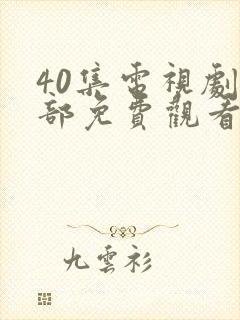 40集電視劇
部免費觀看
九雲衫